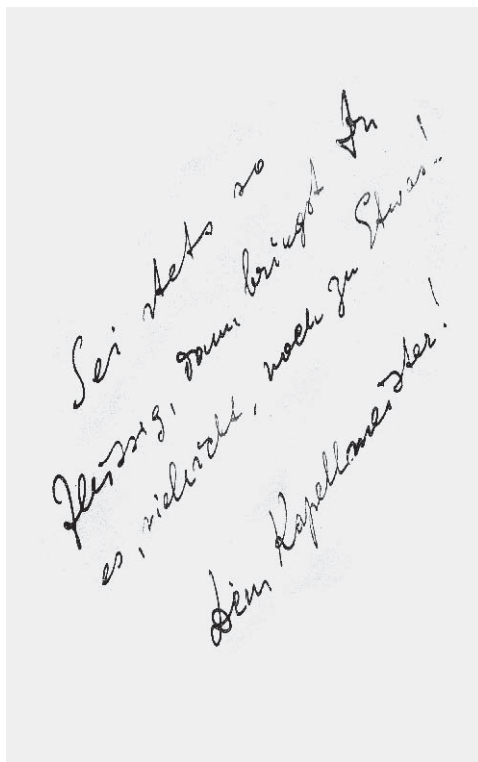 Sei stets so
fleissig, dann bringst Du
es, vielleicht, noch zu Etwas!
Dein Kapellmeister!